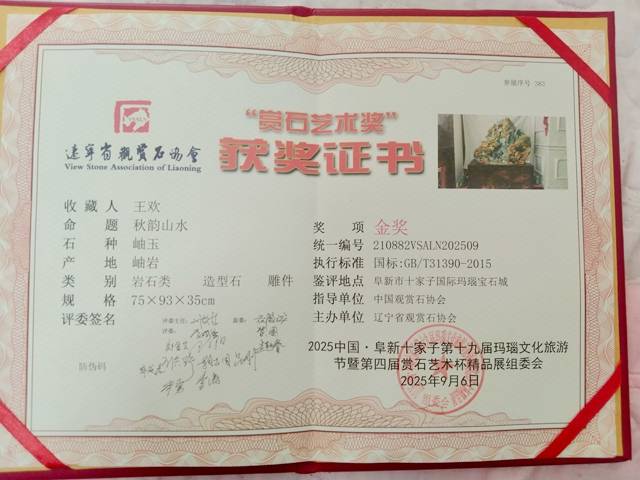 参展序号 383
VSALN
辽宁省观赏石协会
View Stone Association of Liaoning
“赏石艺术奖”
获奖证书
收藏人 王欢
命题 秋韵山水
石种 岫玉
产地 岫岩
类别 岩石类 造型石 雕件
规格 75×93×35cm
评委签名
评委主任:
评委:
监委:
防伪码
奖项 金奖
统一编号 210882VSALN202509
执行标准 国标:GB/T31390-2015
鉴评地点 阜新市十家子国际玛瑙宝石城
指导单位 中国观赏石协会
主办单位 辽宁省观赏石协会
2025中国·阜新十家子第十九届玛瑙文化旅游
节暨第四届赏石艺术杯精品展组委会
2025年9月6日